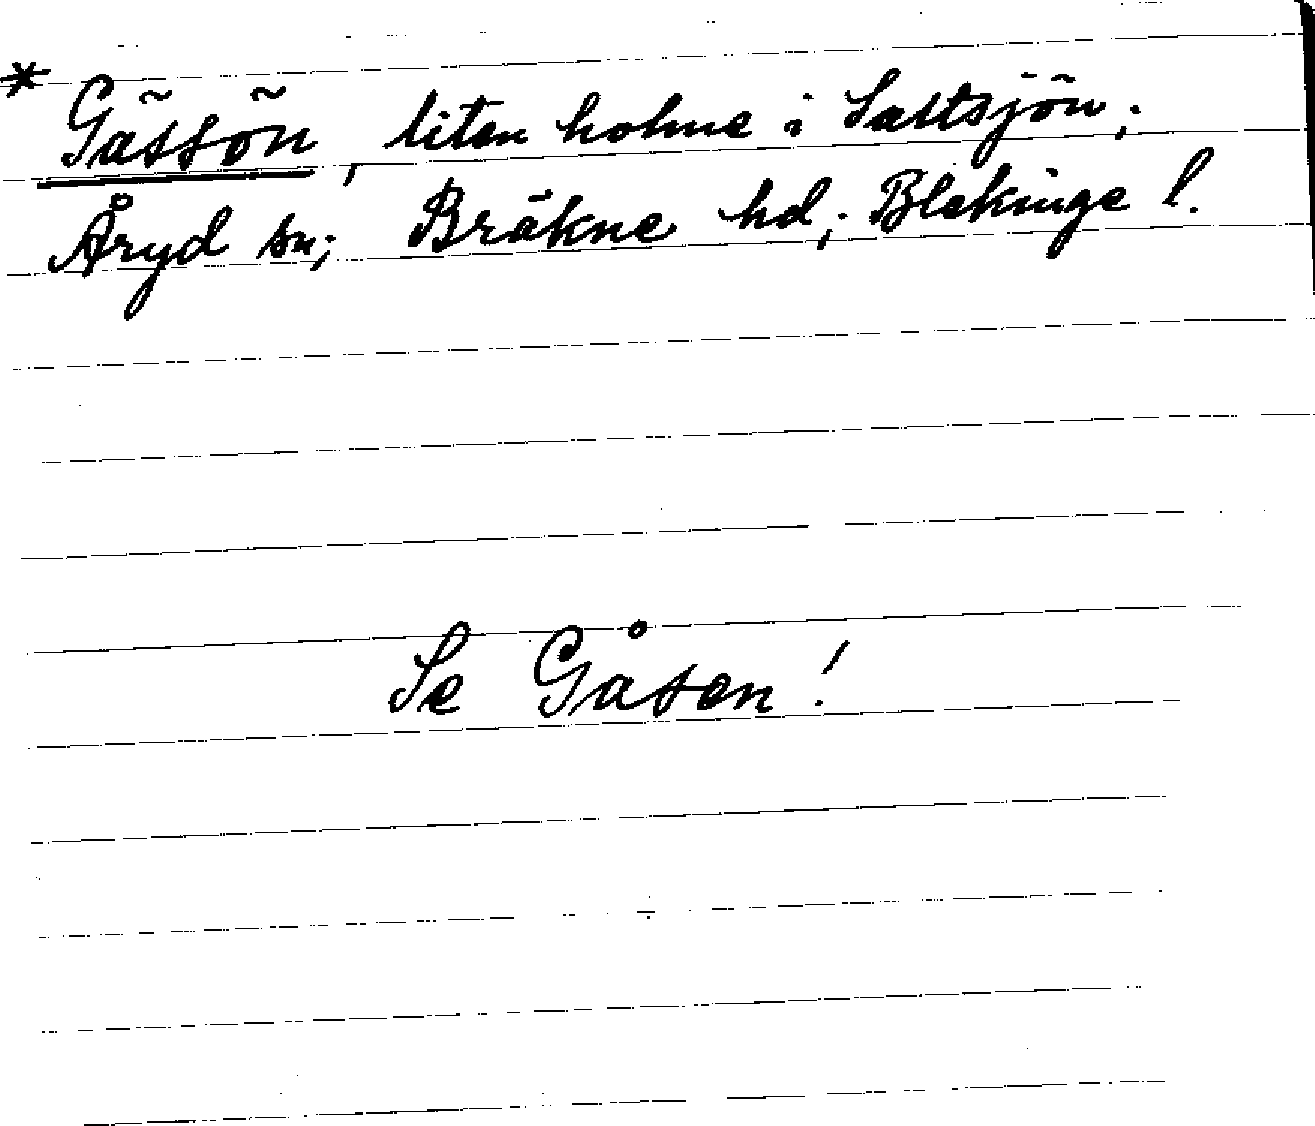 * Gässön, liten holme i Saltsjön,.
Åryd sn; Bräkne hd,. Blekinge l.
Se Gåsen!